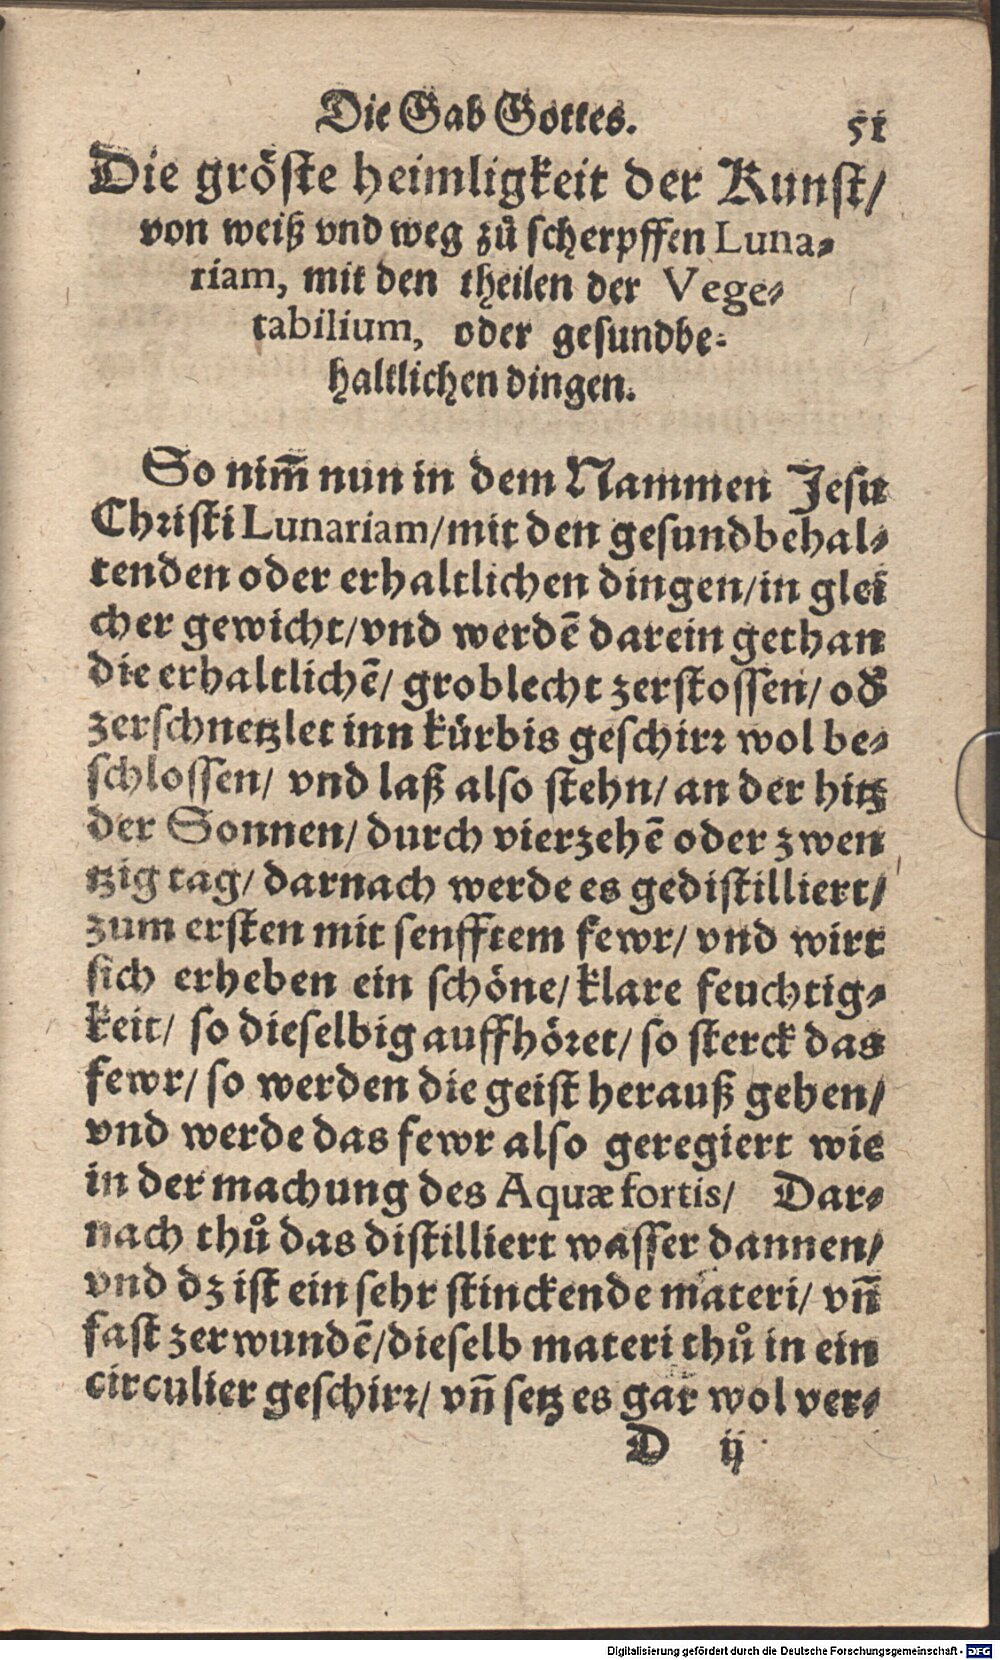 Die Gab Gottes. 51
Die gröſte heimligkeit der Kunſt/
von weiß vnd weg zů ſcherpffen Luna⸗
riam, mit den theilen der Vege⸗
tabilium, oder geſundbe⸗
haltlichen dingen.
So nim̄ nun in dem Nammen Jeſu
Chꝛiſti Lunariam/mit den geſundbehal⸗
tenden oder erhaltlichen dingen/in glei
cher gewicht/vnd werdē darein gethan
die erhaltlichē/ groblecht zerſtoſſen/ od̕
zerſchnetzlet inn kürbis geſchirꝛ wol be⸗
ſchloſſen/ vnd laß alſo ſtehn/ an der hitz
der Sonnen/ durch vierzehē oder zwen
tzig tag/ darnach werde es gediſtilliert/
zum erſten mit ſenfftem fewr/ vnd wirt
ſich erheben ein ſchöne/ klare feuchtig⸗
keit/ ſo dieſelbig auffhöꝛet/ ſo ſterck das
fewr/ ſo werden die geiſt herauß gehen/
vnd werde das fewr alſo geregiert wie
in der machung des Aquæ fortis/ Dar⸗
nach thů das diſtilliert waſſer dannen/
vnd dz iſt ein ſehr ſtinckende materi/ vn̄
faſt zerwundē/dieſelb materi thů in ein
circulier geſchirꝛ/ vn̄ ſetz es gar wol ver⸗
D ij
Digitalisierung gefördert durch die Deutsche Forschungsgemeinschaft - DFG